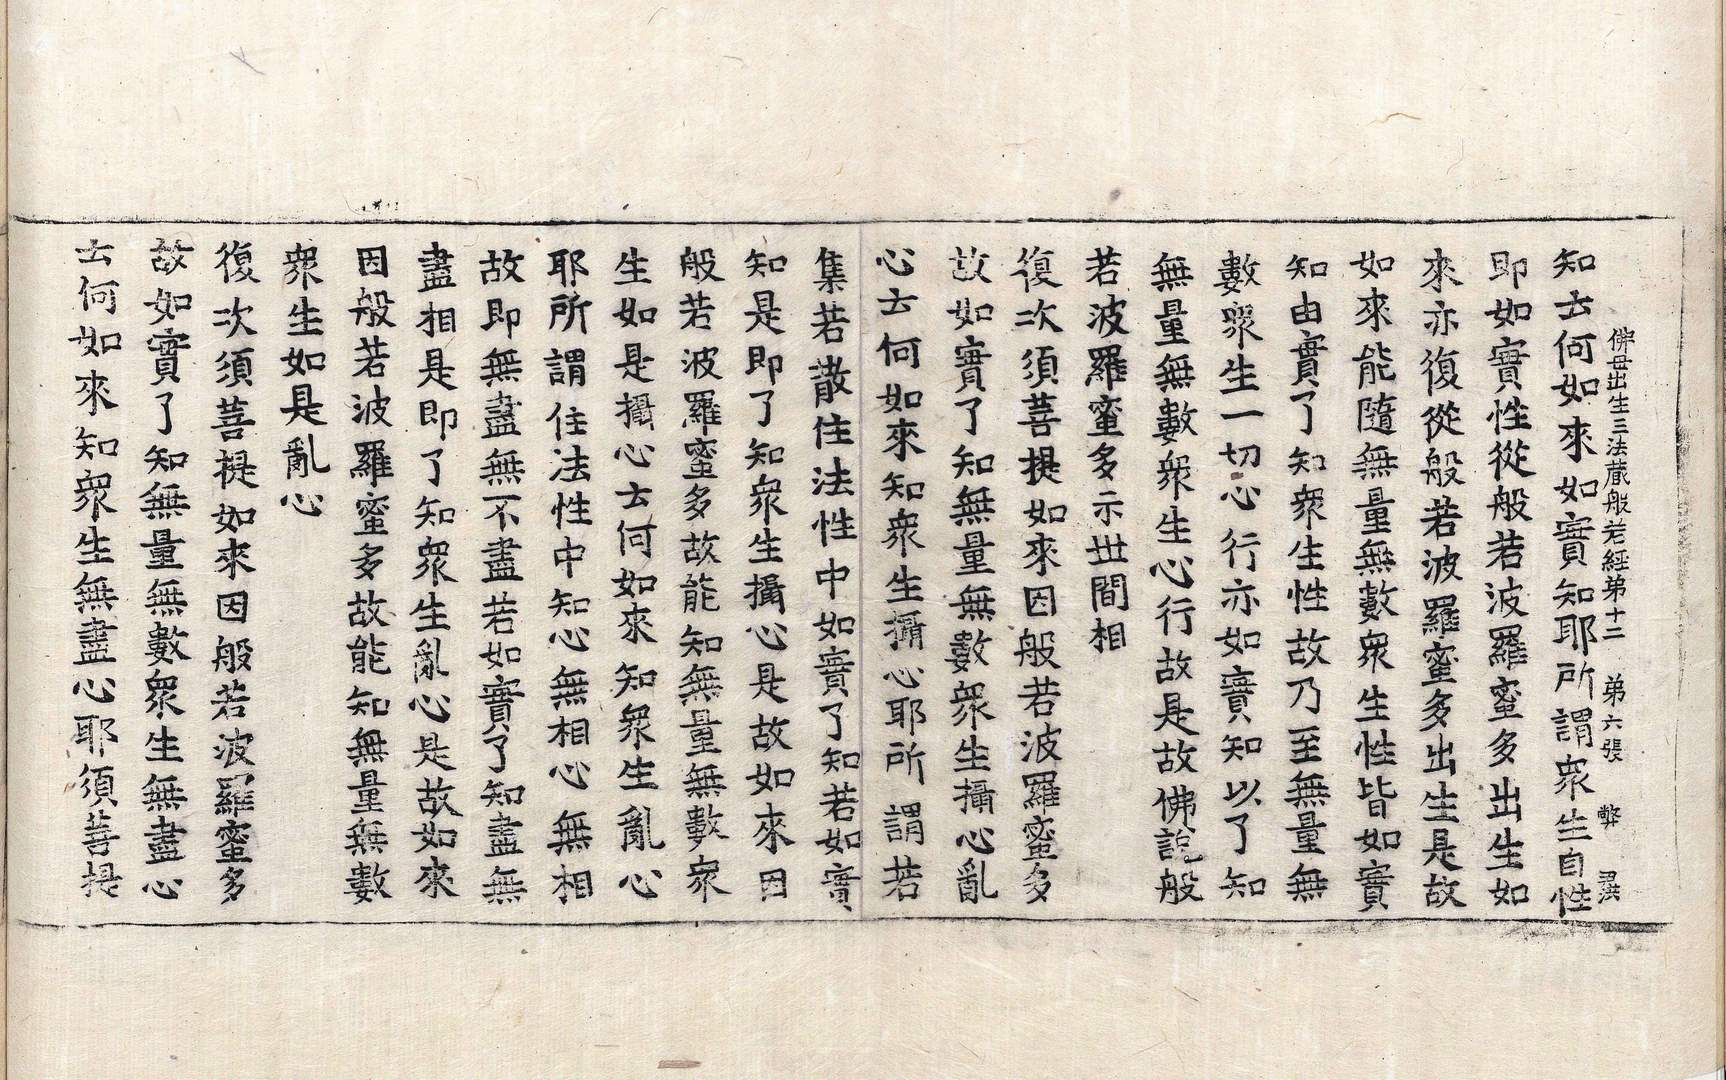 佛母出生三法藏般若經第十二　第六張　弊
知云何如來如實知耶所謂眾生自性
即如實性從般若波羅蜜多出生如
來亦復從般若波羅蜜多出生是故
如來能隨無量無數眾生性皆如實
知由實了知眾生性故乃至無量無
數眾生一切心行亦如實知以了知
無量無數眾生心行故是故佛說般
若波羅蜜多示世間相
復次須菩提如來因般若波羅蜜多
故如實了知無量無數眾生攝心亂
心云何如來知眾生攝心耶所謂若
集若散住法性中如實了知若如實
知是即了知眾生攝心是故如來因
般若波羅蜜多故能知無量無數眾
生如是攝心云何如來知眾生亂心
耶所謂住法性中知心無相心無相
故即無盡無不盡若如實了知盡無
盡相是即了知眾生亂心是故如來
因般若波羅蜜多故能知無量無數
眾生如是亂心
復次須菩提如來因般若波羅蜜多
故如實了知無量無數眾生無盡心
云何如來知眾生無盡心耶須菩提